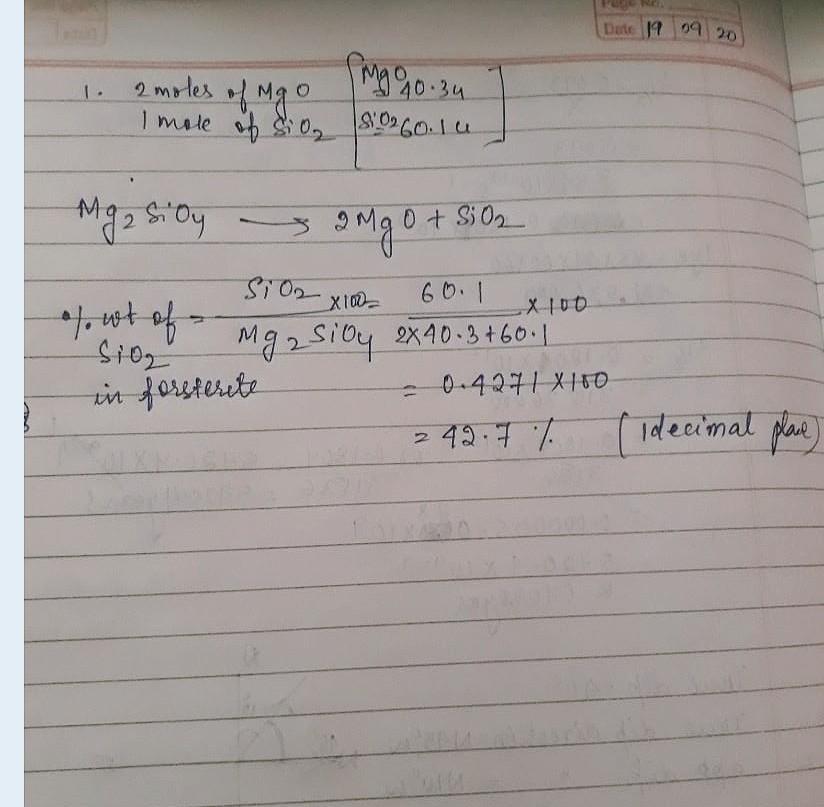 Page No.
Date 19 09 20
1. 2 moles of MgO [MgO 40.34
1 mole of SiO2 SiO2 60.14]
Mg2SiO4 → 2MgO + SiO2
% wt of SiO2 in forsterete = SiO2 / Mg2SiO4 ×100 = 60.1 / 2×40.3+60.1 ×100
= 0.4271 ×100
= 42.7 % (1decimal place)